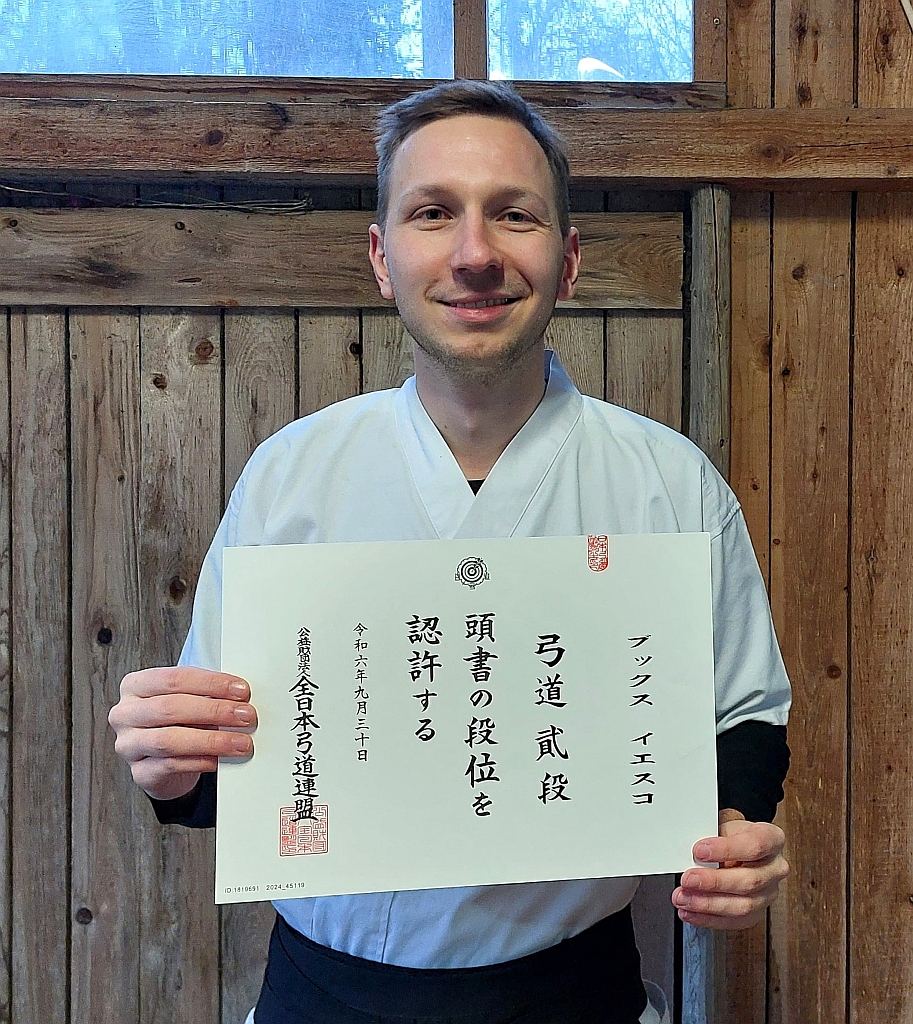 ブックス イエスコ
弓道 貳段
頭書の段位を
認許する
令和六年九月三十日
公益財団法人全日本弓道連盟
ID:1819691 2024_45119